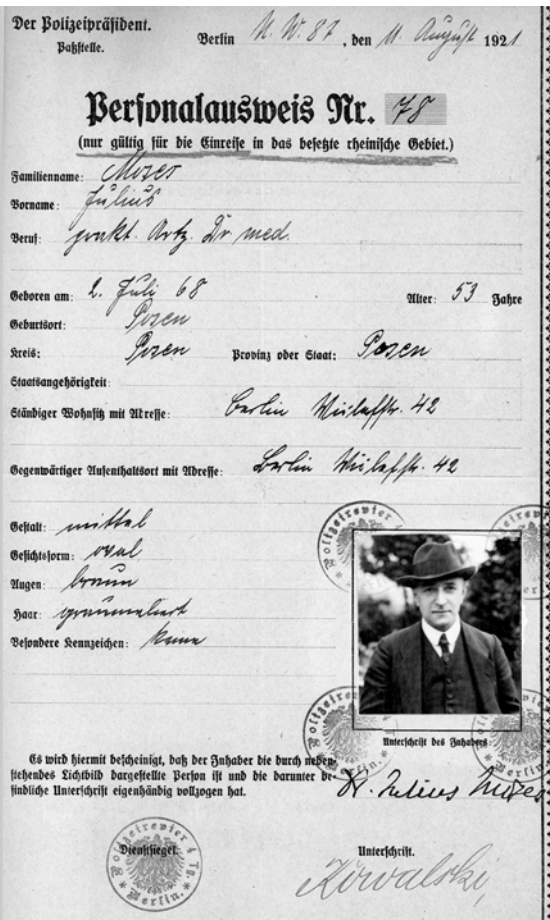 Der Polizeipräsident.
Paßstelle.
Berlin N.W. 87, den 11. August 1921
Personalausweis Nr. 78
(nur gültig für die Einreise in das besetzte rheinische Gebiet.)
Familienname: Moses
Vorname: Julius
Beruf: prakt. Arzt. Dr med.
Geboren am: 2. Juli 68 Alter: 53 Jahre
Geburtsort: Posen
Kreis: Posen Provinz oder Staat: Posen
Staatsangehörigkeit:
Ständiger Wohnsitz mit Adresse: Berlin 42
Gegenwärtiger Aufenthaltsort mit Adresse: Berlin 42
Gestalt: mittel
Gesichtsform: oval
Augen: braun
Haar: graumeliert
Besondere Kennzeichen: keine
Polizeirevier 4
Unterschrift des Inhabers:
Berlin.
Es wird hiermit bescheinigt, daß der Inhaber die durch neben-
stehendes Lichtbild dargestellte Person ist und die darunter be-
findliche Unterschrift eigenhändig vollzogen hat.
Dr. Julius Moses
Dienstsiegel.
Polizeirevier 4 Tg. Berlin.
Unterschrift.
Kowalski